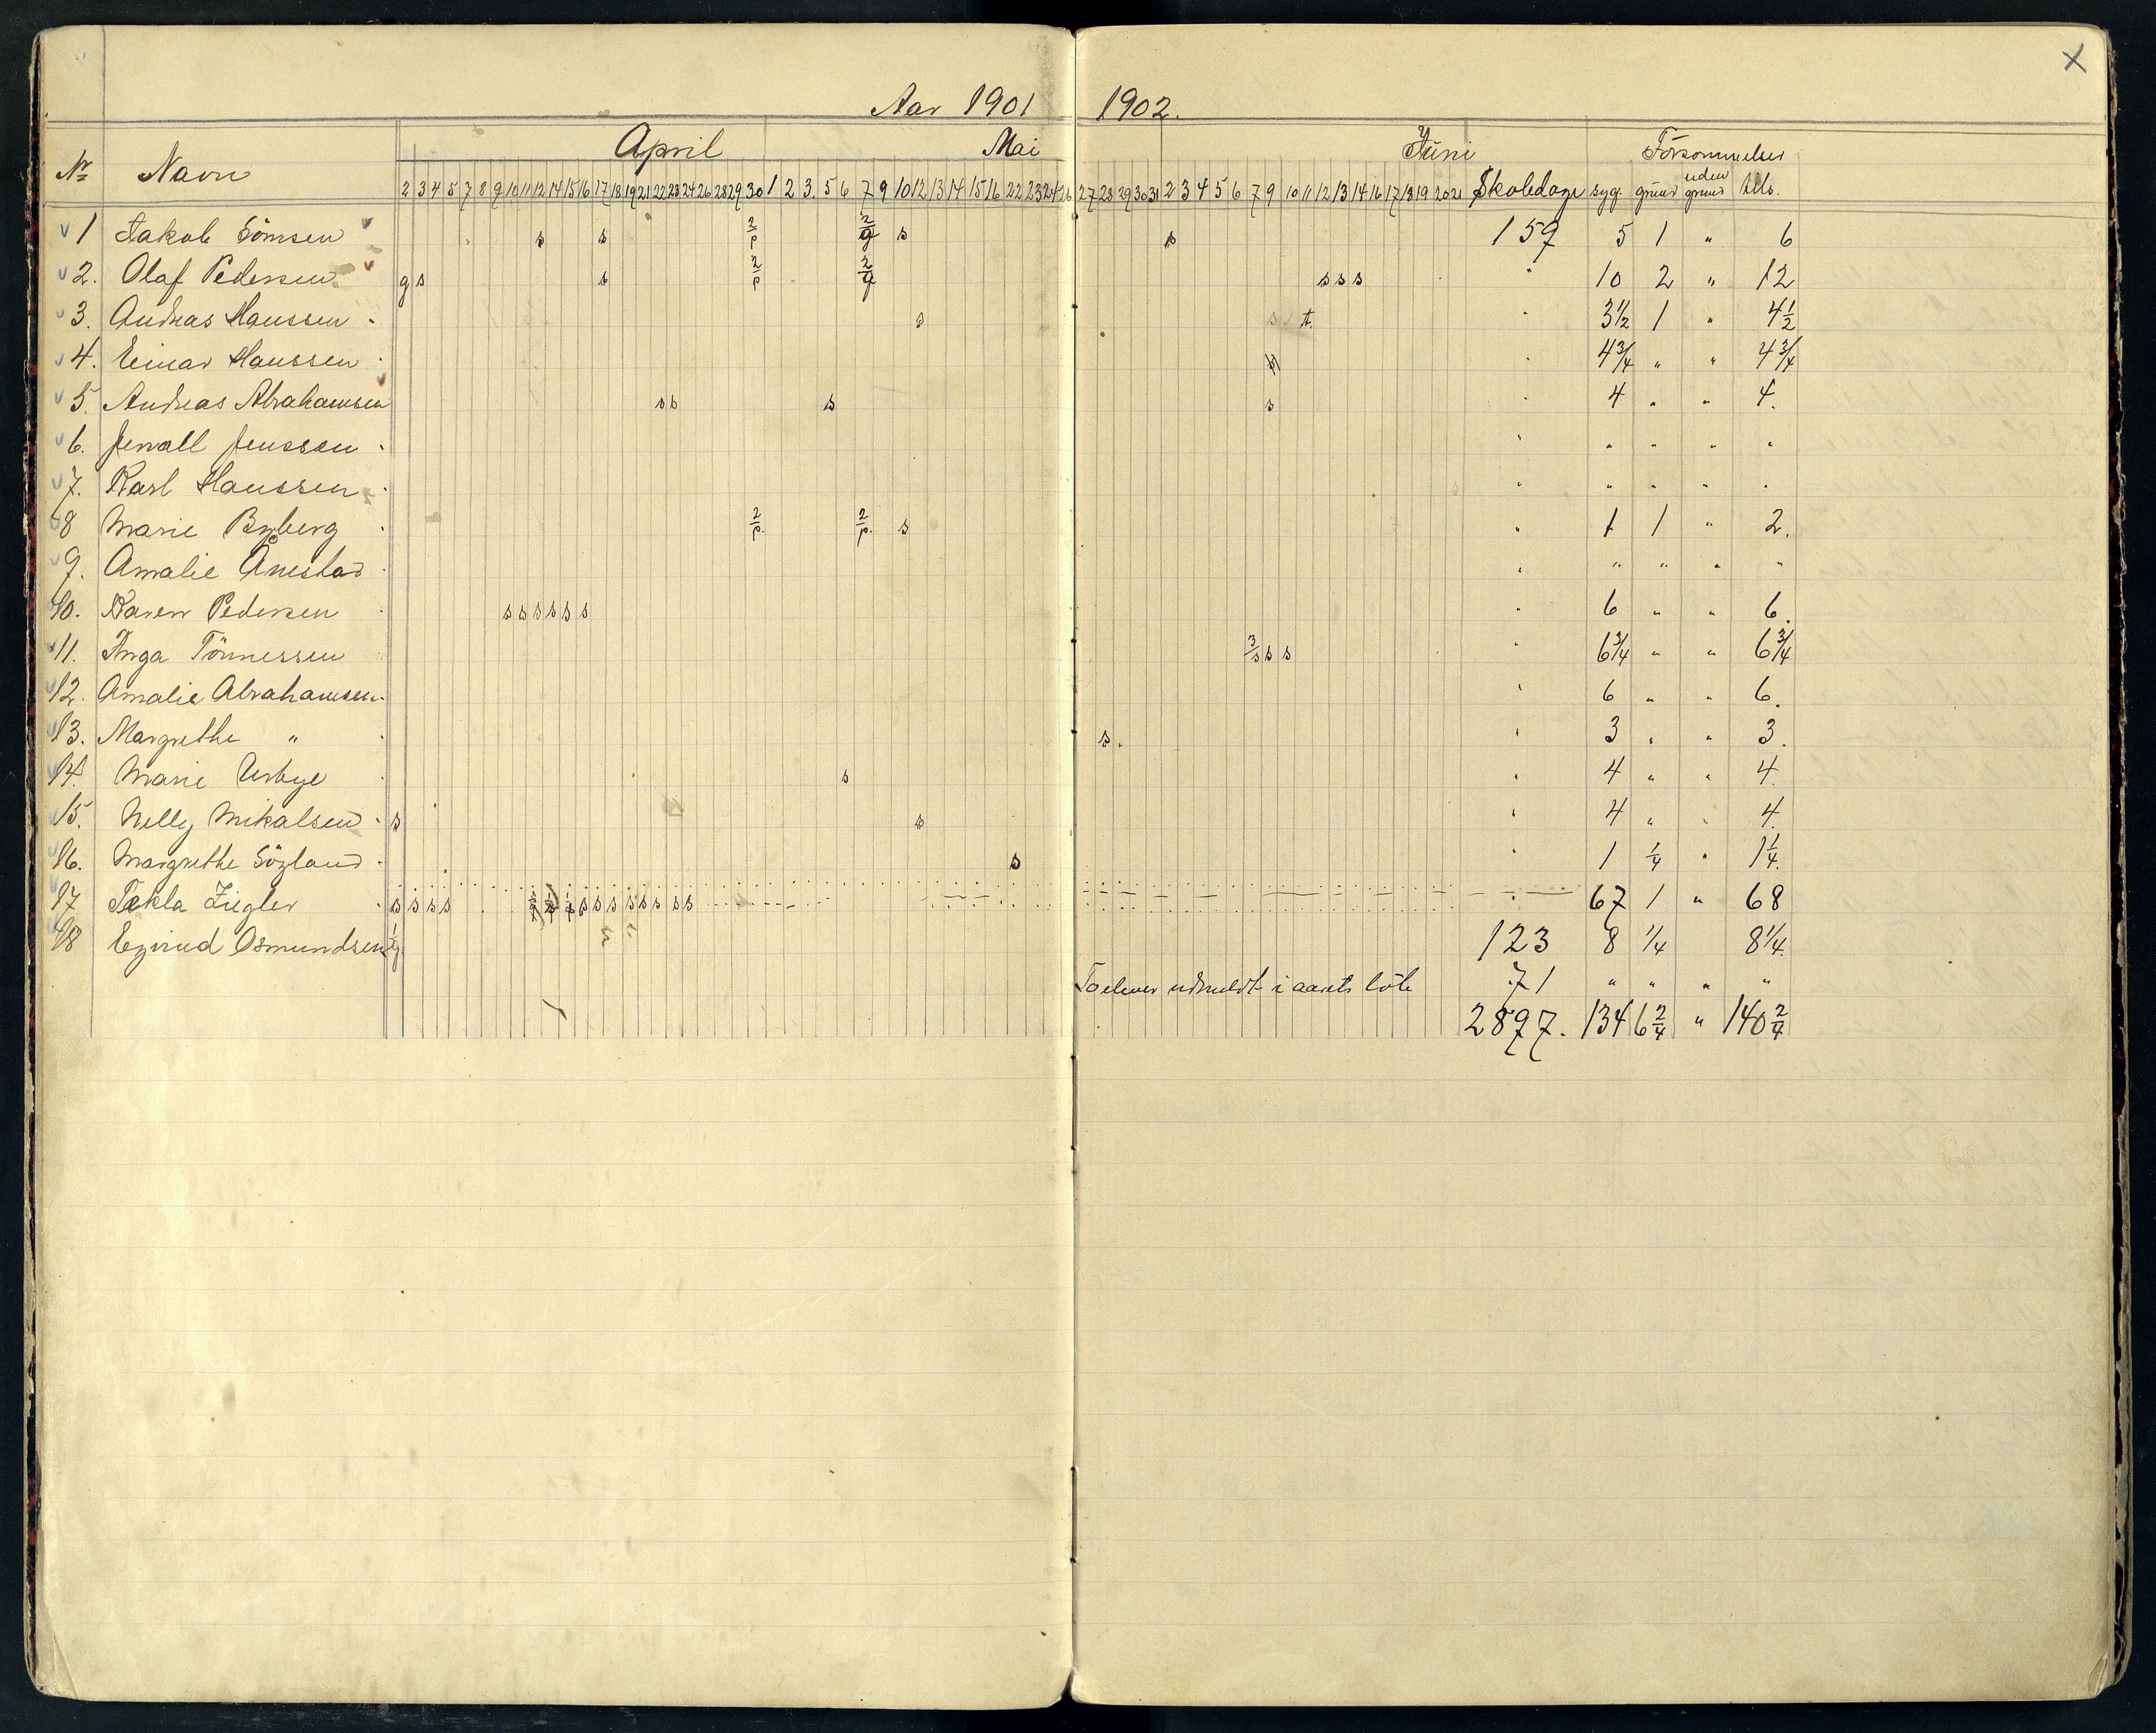 Aar 1901 1902.
April Mai Juni Forsømmelser
No Navn 2 3 4 5 7 8 9 10 11 12 14 15 16 17 18 19 21 22 23 24 26 28 29 30 1 2 3. 5 6 7 9 10 12 13 14 15 16 22 23 24 26 27 28 29 30 31 2 3 4 5 6 7 9 10 11 12 13 14 16 17 18 19 20 21 Skoledage syg. grund uden grund tils.
1 Jakob Sömsen s s 2/p 2/g s s 159 5 1 " 6
2. Olaf Pedersen g s s 2/p 2/g s s s " 10 2 " 12
3. Andreas Hanssen s s t. " 3 1/2 1 " 4 1/2
4. Einar Hanssen " 4 3/4 " " 4 3/4
5. Andreas Abrahamsen s s s s " 4 " " 4.
6. Jenvall Jenssen " " " " "
7. Karl Hanssen " " " " "
8 Marie Byberg 2/p. 2/p. s " 1 1 " 2.
9. Amalie Ånestad " " " " "
10. Karen Pedersen s s s s s s " 6 " " 6.
11. Inga Tönnessen 3/s s s " 6 3/4 " " 6 3/4
12. Amalie Abrahamsen. " 6 " " 6.
13. Margrethe " s. " 3 " " 3.
14. Marie Urbye s " 4 " " 4.
15. Nelly Mikalsen s s " 4 " " 4.
16. Margrethe Söyland s " 1 1/4 " 1 1/4.
17 Tekla Ziegler s s s s s s s s s s s s 67 1 " 68
18 Eyvind Osmundsen 1/g 123 8 1/4 8 1/4.
To elever udmeldt i aarets löb 71 " " " "
2897. 134 6 2/4 " 140 2/4